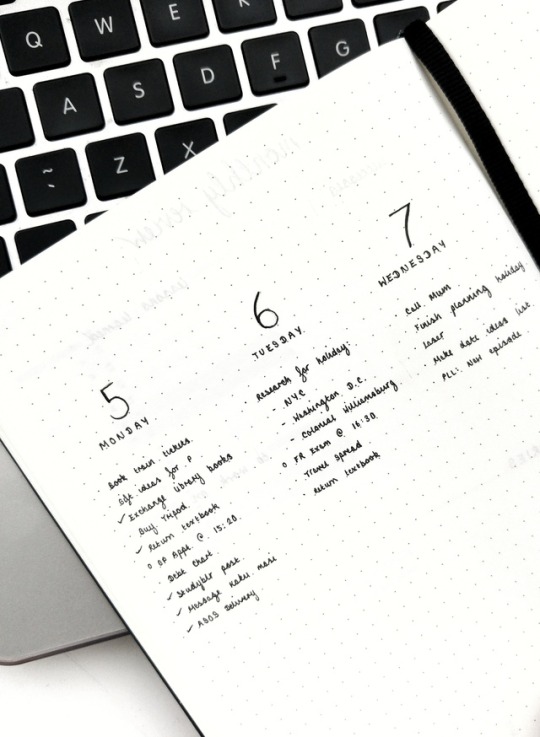 Q W E R
A S D F G
~ Z X
5
MONDAY
Book train tickets
Gift ideas for P
✓ Exchange library books
Buy Tripod
✓ Return textbook
o DP Appt. @ 15:20
Debt chart
✓ Studyblr post
✓ Message Kaku masi
✓ ASOS Delivery
6
TUESDAY
Research for holiday:
- NYC
- Washington D.C.
- Colonial Williamsburg
o FR Exam @ 16:30
Travel Spread
Return textbook
7
WEDNESDAY
Call Mum
Finish planning holiday
Laser
Make date ideas list
PLL: New episode